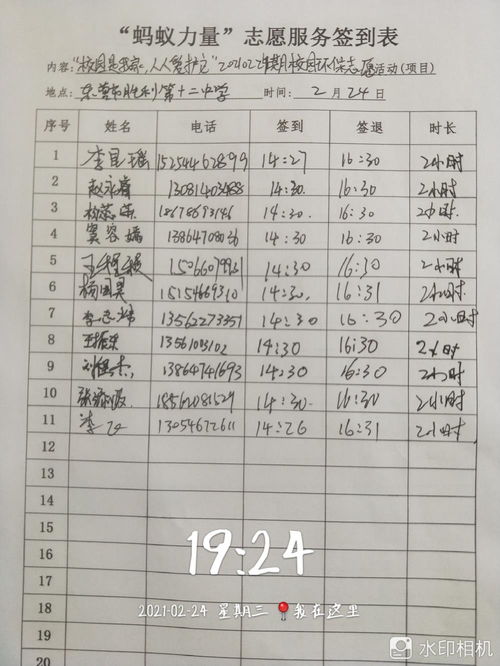 “蚂蚁力量”志愿服务签到表
内容：“校园是我家，人人爱护它”20210224寒期校园环保志愿活动（项目）
地点：东营市胜利第十二中学 时间：2月24日
序号 姓名 电话 签到 签退 时长
1 李 瑶 15254462899 14:27 16:30 2小时
2 赵永 13081403488 14:30. 16:30 2小时
3 14:30. 16:30 2小时.
4 窦容嫣 14:30 16:30 2小时
5 王 14:30 16:30 2小时.
6 杨国昊 14:30. 16:31 2小时
7 李志 13562273351 14:30 16:30 2小时
8 王振东 14:30 16:30 2小时.
9 刘 13864741693 14:30 16:30 2小时
10 张 14:30. 16:30 2小时
11 李 13054672611 14:26 16:31 2小时.
12
13
14
15
16
17
18
19
20
19:24
2021-02-24 星期三 我在这里
水印相机